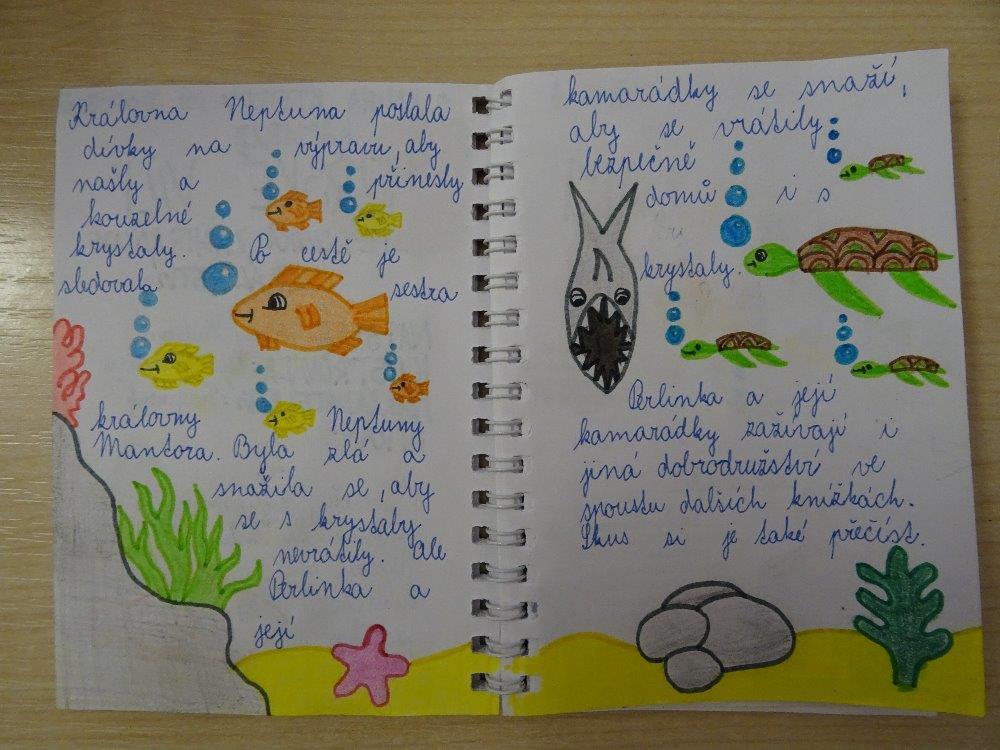 Královna Neptuna poslala
dívky na výpravu, aby
našly a přinesly
kouzelné
krystaly. Po cestě je
sledovala sestra
královny Neptuny
Mantora. Byla zlá a
snažila se, aby
se s krystaly
nevrátily. Ale
Perlinka a
její
kamarádky se snaží,
aby se vrátily
bezpečně
domů i s
krystaly.
Perlinka a její
kamarádky zažívají i
jiná dobrodružství ve
spoustu dalších knížkách.
Skus si je také přečíst.